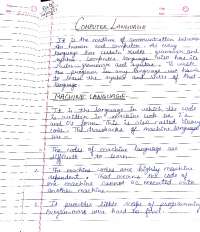 COMPUTER LANGUAGE
It is the medium of communication between
the human and computer. As every
language has certain rules grammar and
syntax. Computer language also has its
rules, grammar and syntax. To write
the program in any language we have
to know the syntax and rules of that
language.
MACHINE LANGUAGE:-
It is the language in which the code
is written in machine code i.e. 1's
and 0's form. This is also called binary
code. The drawbacks of machine language
are -
1. The codes of machine language are
difficult to learn.
2. The machine codes are highly machine
dependent. That means the code of
one machine cannot be executed into
another machine.
3. It provides little scope of programming
programmers were hard to find.